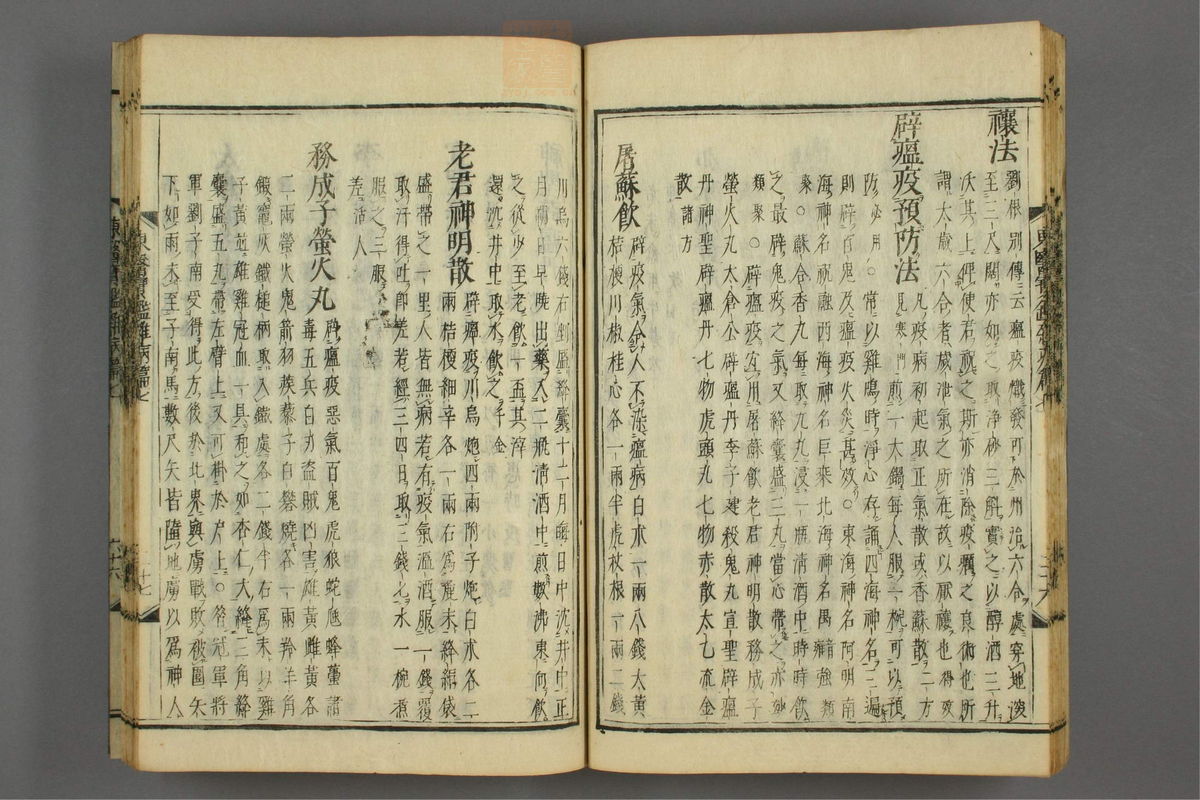 禳法
劉根別傳云瘟疫熾發可於州治六合處穿地深
至三尺闊亦如之取淨砂三斛實之以醇酒三升
沃其上俾使君祝之斯亦消除疫癘之良術也所
謂太歲六合者歲泄氣之所在故以厭禳也得效
辟瘟疫預防法
凡疫病初起取正氣散或香蘇散二方
見寒門煎一大鍋每人服一椀可以預
防必用○常以雞鳴時淨心存誦四海神名三遍
則辟百鬼及瘟疫火災甚效○東海神名阿明南
海神名祝融西海神名巨乘北海神名禺䝞強類
聚○蘇合香九每取九丸浸一瓶清酒中時時飮
之最辟鬼疫又絳囊盛三九當心帶之亦妙
類聚○辟瘟疫宜用屠蘇飮老君神明散務成子
螢火丸太倉公辟瘟丹李子建殺鬼丸宣聖辟瘟
丹神聖辟瘟丹七物虎頭丸七物赤散太乙流金
散諸方
屠蘇飮
辟疫氣令人不染瘟病白朮一兩八錢大黃
桔梗川椒桂心各一兩半虎杖根一兩二錢
川烏六錢右剉盛絳囊十二月晦日中沈井中正
月朔日早曉出藥入二瓶清酒中煎數沸東向飮
之從少至老飮一盃其滓
還沈井中取水飮之千金
老君神明散
辟瘟疫川烏炮四兩附子炮白朮各二
兩桔梗細辛各一兩右爲麄末絳絹袋
盛帶之一里人皆無病若有疫氣溫酒服一錢覆
取汗得吐卽差若經三四日取三錢匕水一椀煮
服之三服
差活人
務成子螢火丸
辟瘟疫惡氣百鬼虎狼蛇虺蜂蠆諸
毒五兵白刃盜賊凶害雄黃雌黃各
二兩螢火鬼箭羽蒺藜子白礬燒各一兩羚羊角
鍛竈灰鐵槌柄取入鐵處各二錢半右爲末以雞
子黃並雄雞冠血一具和之如杏仁大絳三角絳
囊盛五丸帶左臂上又可掛於戶上○昔冠軍將
軍劉子南受得此方後於北界與虜戰敗被圍矢
下如雨未至子南馬數尺矢皆墮地虜以爲神人